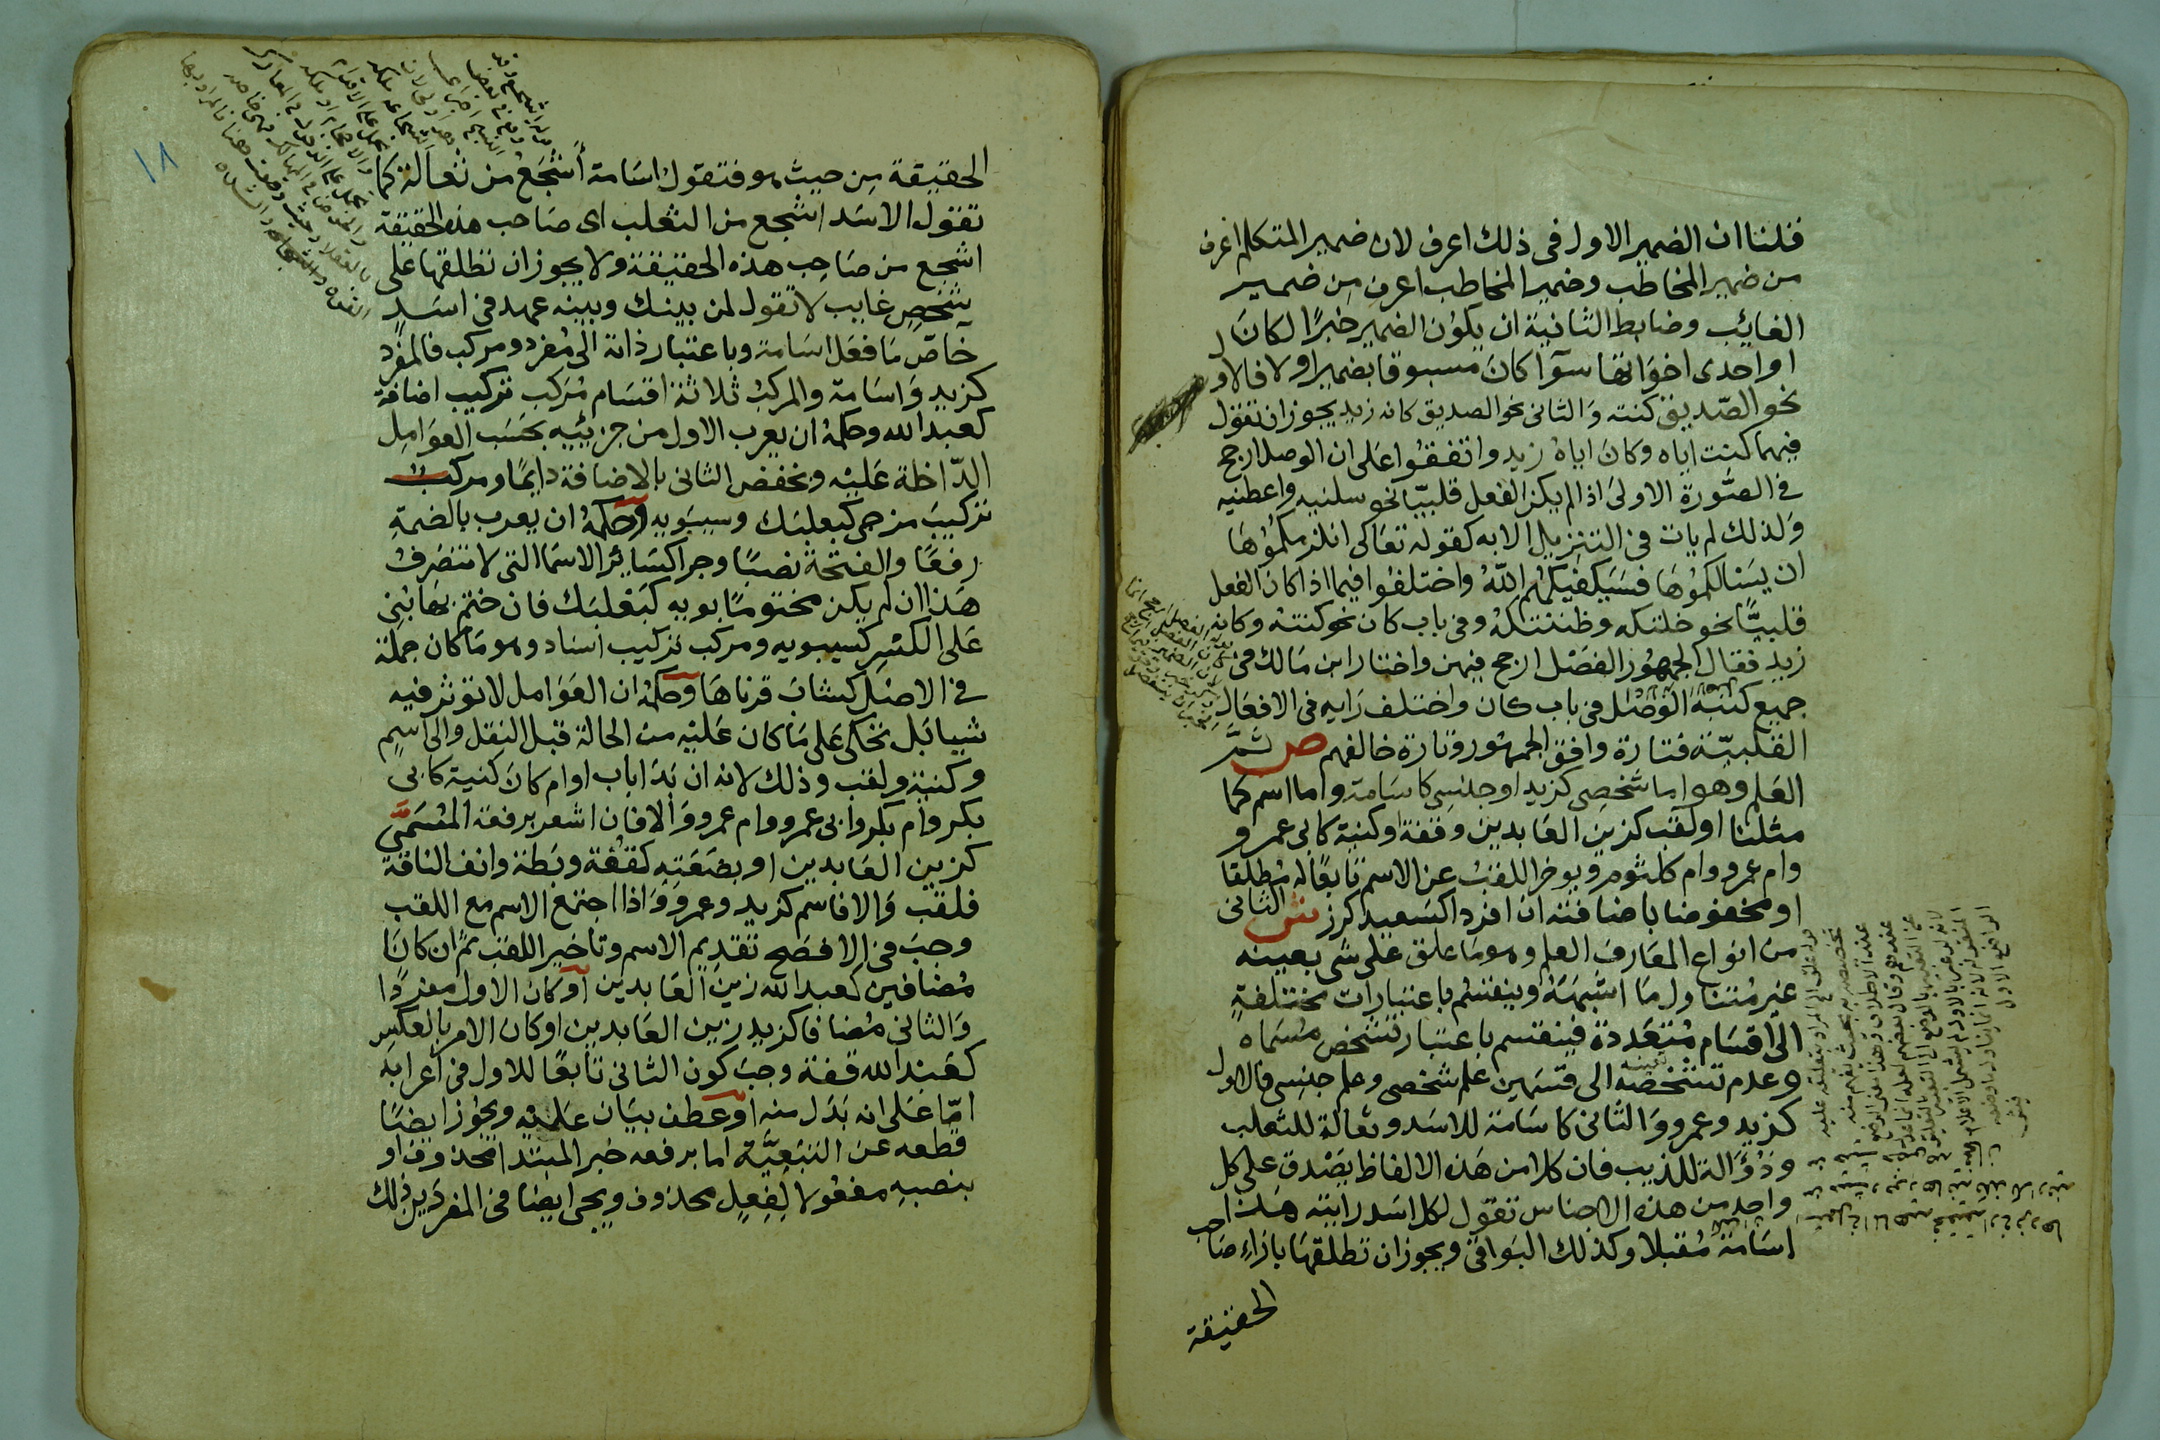 قلنا ان الضمير الاول في ذلك اعرف لان ضمير المتكلم اعرف
من ضمير المخاطب وضمير المخاطب اعرف من ضمير
الغائب وضابط الثانية ان يكون الضمير خبرًا لكان
او احدى اخواتها سوآ كان مسبوقا بضمير او لا فالاول
نحو الصّديق كنته وَالثانى نحو الصديق كانه زيد يجوز ان تقول
فيهما كنت اياه وكانَ اياهُ زيد واتفقُوا عَلى ان الوصل ارجح
في الصُّورة الاولىَ اذا لم يكن الفعل قلبيّا نحو سلنيه واعطنيه
وَلذلك لم يات في التنزيل الا به كقوله تعَالى انلزمكمُوُهَا
ان يسَئالكمُوُهَا فسَيَكفيكهُم اللّهُ واختلفُوا فيما اذا كان الفعل
قلبيًّا نحو خلتكه وظننتكهُ وفي باب كان نحو كنتهُ وكانه
زيد فقال الجمهُور الفصْل ارجح فيهن واختار ابن مَالك في
جميع كتبه الوَصْل في باب كان واختلف رَايه في الافعَال
القلبيّة فتارة وافق الجمهُور وتارة خالفهم ص ثمَّ
العَلم وهو اما شخصِى كزيد او جنسِى كاسَامة واما اسم كما
مثلنا او لقب كزين العَابدين وقفة او كنية كابى عمرو و
وام عمرو وام كلثوم ويوخر اللقبُ عن الاسم تابعًا له مُطلقا
او مخفوضا باضافته ان افردا كسَعيد كرز ش الثانى
من انواع المعَارف العلم وهو مَا علق عَلى شى بعينه
غير مُتناول مَا اشبههُ وينقسُم باعتبارات مختلفةٍ
الى اقسَام مُتعَددة فينقسم باعتبار تشخص مُسَماه
وعدم تشخصه الى قسمين علم شخصى وعلم جنسى فالاول
كزيد وعمرو وَالثانى كاسَامَة للاسَد وثعَالة للثعلب
وذُؤَالة للذيب فان كلا من هَذه الالفاظ يصْدق على كل
واحد من هذه الاجناس تقول لكل اسَد رايته هَذا
اسَامَة مُقبلا وكذلك البَواقى ويجوز ان تطلقهَا بازاءِ صَاحب
الحقيقة
١٨
الحقيقة مِن حيث هو فتقول اسَامة أشْجَعُ من ثعَالة كما
تقول الاسَد اشجع من الثعْلب اى صَاحب هذه الحقيقة
اشجع من صَاحِب هذه الحقيقة ولا يجوز ان تطلقها على
شخصٍ غايب لا تقول لمن بينك وبينه عهد في اسَدٍ
خاصّ مَا فعَل اسَامة وباعتبار ذاته الى مُفرد ومركب فالمفرد
كزيد وَاسَامة والمركبُ ثلاثة اقسَام مُرَكب تركيب اضافة
كعبد الله وحكمهُ ان يعرب الاول من جزئيه بحَسَب العوَامِل
الدّاخلة عَليْه ويخفض الثانى بالاضافة دايمًا ومركب
تركيبَ مزجى كبعلبَك وسيبَويه وحكمهُ ان يعرب بالضمةِ
رفعًا والفتحة نصبًا وجرا كسَائر الاسمَا التى لا تنصَرفُ
هَذا ان لم يكن مختومًا بويه كبَعْلبَك فان ختم بها بُنِى
عَلى الكسْرِ كسيبويه ومركب تركيب اسناد وهو مَا كان جملة
في الاصْل كشابَ قرناهَا وحكمهُ ان العَوَامل لا توثر فيه
شيا بَل يحْكى عَلى مَا كان عَليْه من الحالة قبل النقل والى اسم
وكنية ولقب وذلك لانه ان بُدَا باب او ام كانَ كنية كابى
بكر وام بكر وابى عمرو وام عمرو وَالا فان اشعر برفعة المُسَمَّى
كزين العَابدين او بضَعَتِه كقفّة وبَطة وانف الناقة
فلقب وَالا فاسم كزيد وعمرو وَاذا اجتمع الاسم مع اللقب
وجبَ في الافصَح تقديم الاسم وتاخير اللقب ثم ان كانَا
مُضافين كعبد اللّه زينَ العَابدين او كان الاول مفردًا
وَالثانى مُضافا كزيد زين العَابدين او كان الامر بالعكسِ
كعَبْد الله قفة وجبَ كون الثانى تابعًا للاول في اعرابه
امّا عَلى انه بَدَل منه او عطف بيَان عَليْه ويجُوز ايضًا
قطعه عن التبعيَّة اما برفعه خبر المبتدا محذوف او
بنصبهِ مفعُولا لِفِعلٍ محذوف ويجى ايضا في المفردَين ذلك